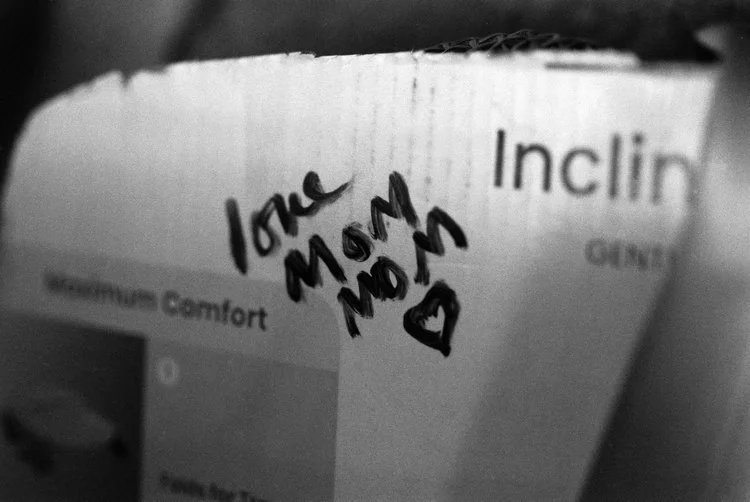 Inclin
GENT
love
Mom
Mom
Maximum Comfort